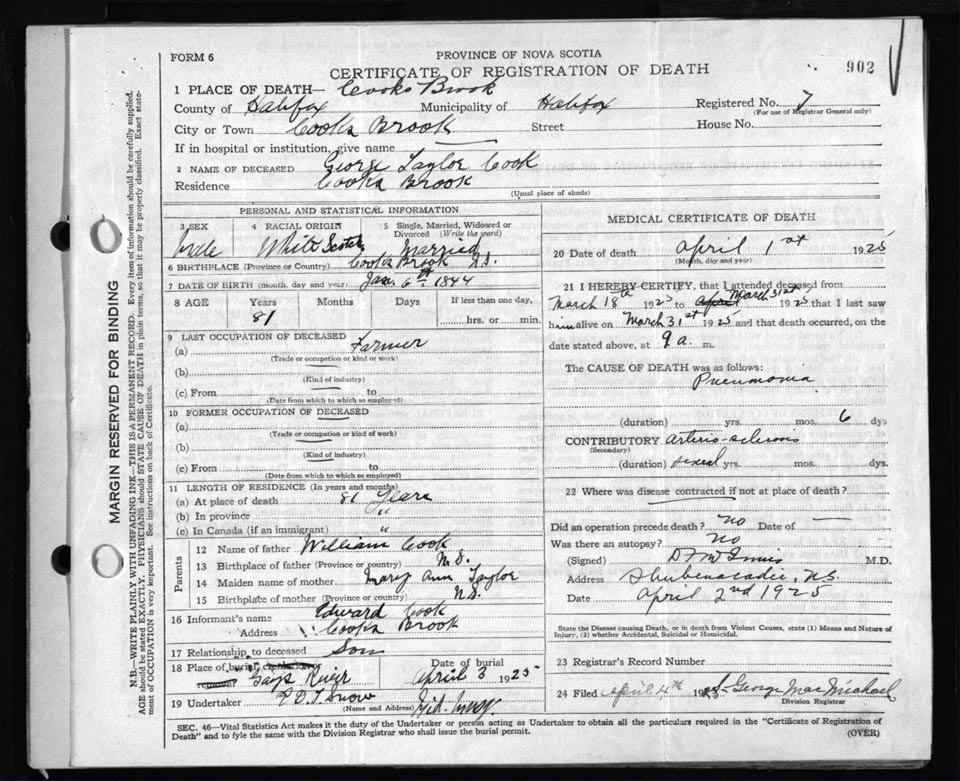 FORM 6
PROVINCE OF NOVA SCOTIA
CERTIFICATE OF REGISTRATION OF DEATH
902
1 PLACE OF DEATH— Cooks Brook
County of Halifax Municipality of Halifax Registered No. 7
(For use of Registrar General only)
City or Town Cooks Brook Street House No.
If in hospital or institution, give name
2 NAME OF DECEASED George Taylor Cook
Residence Cooks Brook
(Usual place of abode)
PERSONAL AND STATISTICAL INFORMATION
3 SEX 4 RACIAL ORIGIN 5 Single, Married, Widowed or Divorced (Write the word)
Male White Scotch Married
6 BIRTHPLACE (Province or Country) Cooks Brook N.S.
7 DATE OF BIRTH (month, day and year) Jan. 6th 1844
8 AGE Years Months Days If less than one day,
81 hrs. or min.
9 LAST OCCUPATION OF DECEASED
(a) Farmer
(Trade or occupation or kind of work)
(b)
(Kind of industry)
(c) From to
(Date from which to which so employed)
10 FORMER OCCUPATION OF DECEASED
(a)
(Trade or occupation or kind of work)
(b)
(Kind of industry)
(c) From to
(Date from which to which so employed)
11 LENGTH OF RESIDENCE (In years and months)
(a) At place of death 81 Years
(b) In province "
(c) In Canada (if an immigrant) "
Parents
12 Name of father William Cook
13 Birthplace of father (Province or country) N.S.
14 Maiden name of mother Mary Ann Taylor
15 Birthplace of mother (Province or country) N.S.
16 Informant's name Edward Cook
Address Cooks Brook
17 Relationship to deceased Son
18 Place of burial, Date of burial
Gays River April 3 1925
19 Undertaker Snow
(Name and Address)
MEDICAL CERTIFICATE OF DEATH
20 Date of death April 1st 1925
(Month, day and year)
21 I HEREBY CERTIFY, that I attended deceased from
March 18th 1925 to April March 31st 1925 that I last saw
him alive on March 31st 1925 and that death occurred, on the
date stated above, at 9 a. m.
The CAUSE OF DEATH was as follows:
Pneumonia
(duration) yrs. mos. 6 dys
CONTRIBUTORY arterio-sclerosis
(Secondary)
(duration) several yrs. mos. dys.
22 Where was disease contracted if not at place of death?
Did an operation precede death? no Date of —
Was there an autopsy? no
(Signed) D F W Innis M.D.
Address Shubenacadie, N.S.
Date April 2nd 1925
State the Disease causing Death, or in death from Violent Causes, state (1) Means and Nature of
Injury, (2) whether Accidental, Suicidal or Homicidal.
23 Registrar's Record Number
24 Filed April 4th George MacMichael
Division Registrar
SEC. 46—Vital Statistics Act makes it the duty of the Undertaker or person acting as Undertaker to obtain all the particulars required in the "Certificate of Registration of
Death" and to fyle the same with the Division Registrar who shall issue the burial permit.
(OVER)
MARGIN RESERVED FOR BINDING
N.B.—WRITE PLAINLY WITH UNFADING INK—THIS IS A PERMANENT RECORD. Every item of information should be carefully supplied.
AGE should be stated EXACTLY. PHYSICIANS should STATE CAUSE OF DEATH in plain terms, so that it may be properly classified. Exact state-
ment of OCCUPATION is very important. See instructions on back of Certificate.